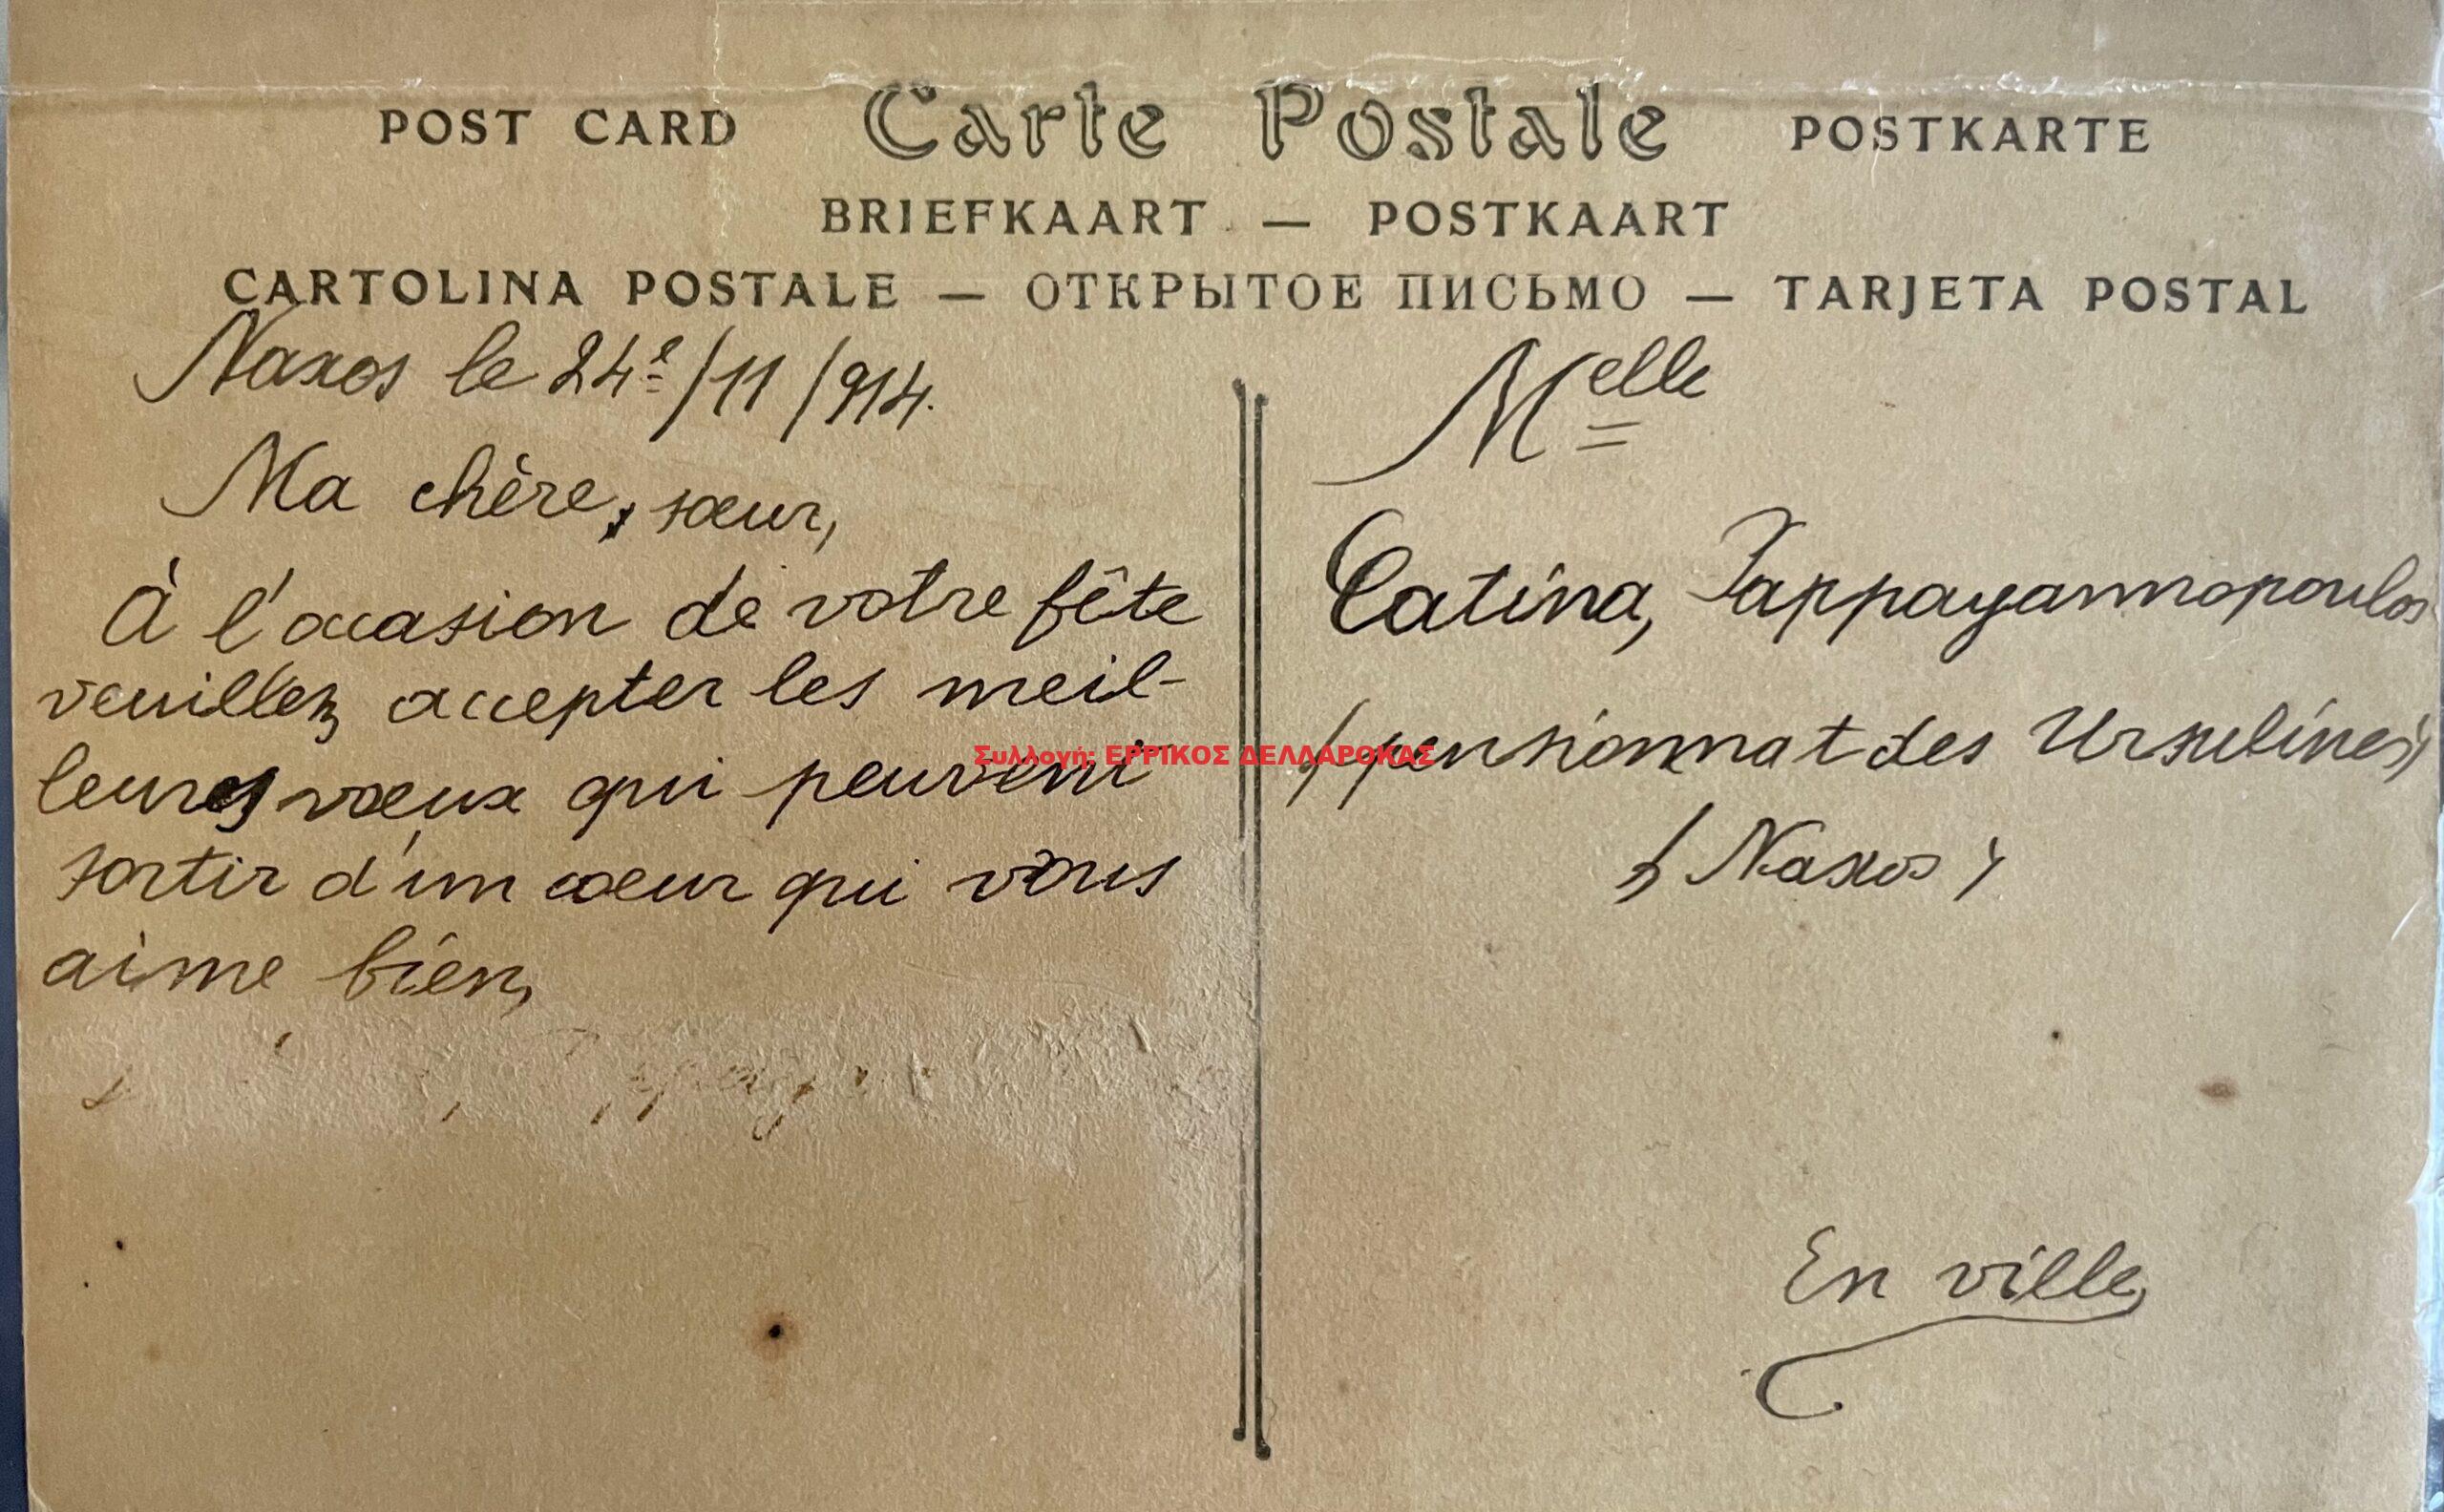 POST CARD Carte Postale POSTKARTE
BRIEFKAART — POSTKAART
CARTOLINA POSTALE — ОТКРЫТОЕ ПИСЬМО — TARJETA POSTAL
Naxos le 24e/11/914.
Ma chère, sœur,
À l'occasion de votre fête
veuillez accepter les meil-
leures vœux qui peuvent
sortir d'un cœur qui vous
aime bien,
Melle
Catina, Pappayannopoulos
(pensionnat des Ursulines)
(Naxos)
En ville
Συλλογή: ΕΡΡΙΚΟΣ ΔΕΛΛΑΡΟΚΑΣ